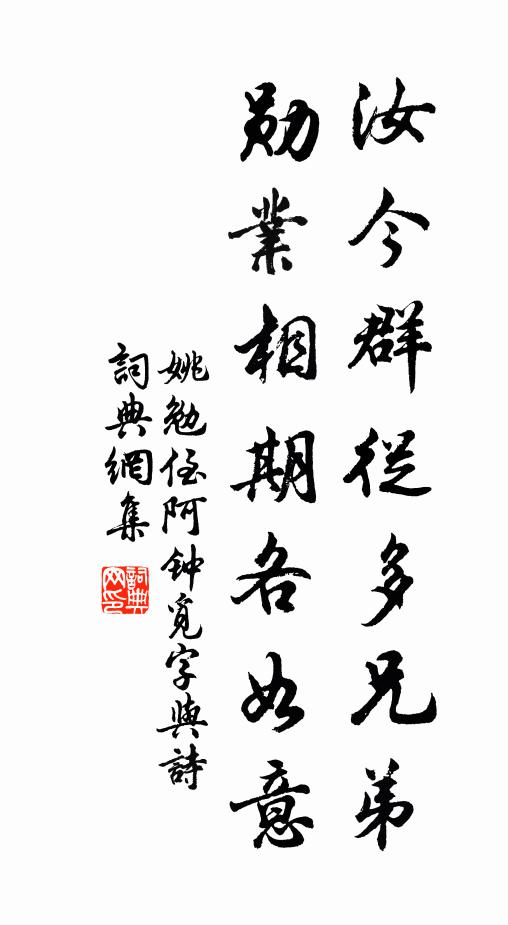 汝今群從多兄弟
勛業相期各如意
姚勉侄阿钟覓字與詩
詞典網集
詞典
网印